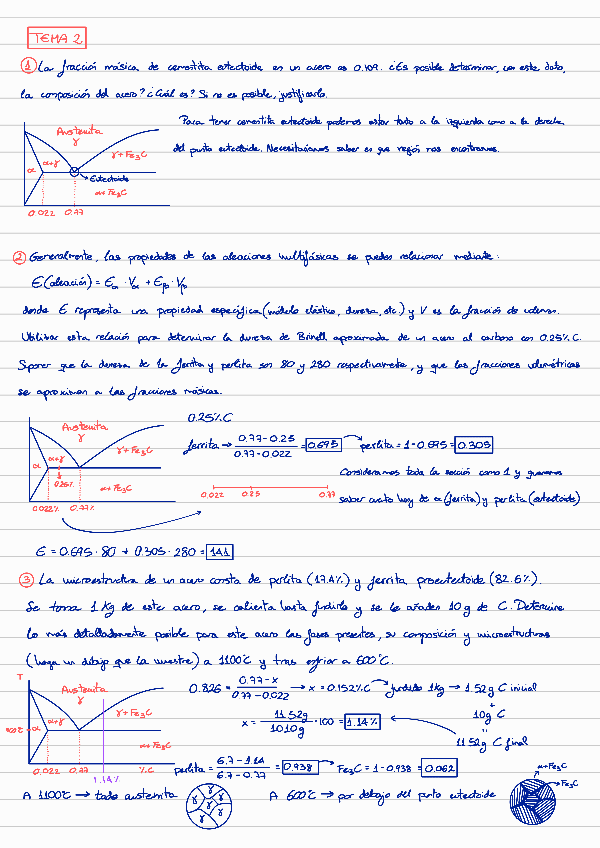 TEMA 2
① La fracción másica de cementita eutectoide en un acero es 0.109. ¿Es posible determinar, con este dato,
la composición del acero? ¿Cuál es? Si no es posible, justifícarlo.
Para tener cementita eutectoide podemos estar tanto a la izquierda como a la derecha
del punto eutectoide. Necesitaríamos saber en que región nos encontramos.
Austenita
γ
γ+Fe3C
α+γ
α
Eutectoide
α+Fe3C
0.022 0.77
② Generalmente, las propiedades de las aleaciones multifásicas se pueden relacionar mediante:
E(aleación) = Eα · Vα + Eβ · Vβ
donde E representa una propiedad específica (módulo elástico, dureza, etc.) y V es la fracción de volumen.
Utilizar esta relación para determinar la dureza de Brinell aproximada de un acero al carbono con 0.25% C.
Suponer que la dureza de la ferrita y perlita son 80 y 280 respectivamente, y que las fracciones volumétricas
se aproximan a las fracciones másicas.
0.25%C
Austenita
γ
γ+Fe3C
α
α+γ
0.25%
α+Fe3C
0.022% 0.77%
ferrita → 0.77-0.25 / 0.77-0.022 = 0.695 perlita = 1-0.695 = 0.305
Consideramos toda la sección como 1 y queremos
0.022 0.25 0.77
saber cuanto hay de α (ferrita) y perlita (eutectoide)
E = 0.695 · 80 + 0.305 · 280 = 141
③ La microestructura de un acero consta de perlita (17.4%) y ferrita proeutectoide (82.6%).
Se toma 1 Kg de este acero, se calienta hasta fundirlo y se le añaden 10 g de C. Determine
lo más detalladamente posible para este acero las fases presentes, su composición y microestructuras
(haga un dibujo que la muestre) a 1100°C y tras enfriar a 600°C.
T
Austenita
γ
γ+Fe3C
α
α+γ
α+Fe3C
0.022 0.77 %C
1.14%
0.826 = 0.77-x / 0.77-0.022 → x = 0.152%C fundido 1Kg → 1.52g C inicial
+
10g C
"
11.52g C final
x = 11.52g / 1010g · 100 = 1.14%
perlita = 6.7-1.14 / 6.7-0.77 = 0.938 Fe3C = 1-0.938 = 0.062
A 1100°C → todo austenita
γ γ γ γ γ γ
A 600°C → por debajo del punto eutectoide
α+Fe3C
Fe3C